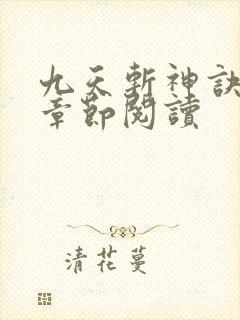 九天斬神訣
章節閱讀
清花蔓